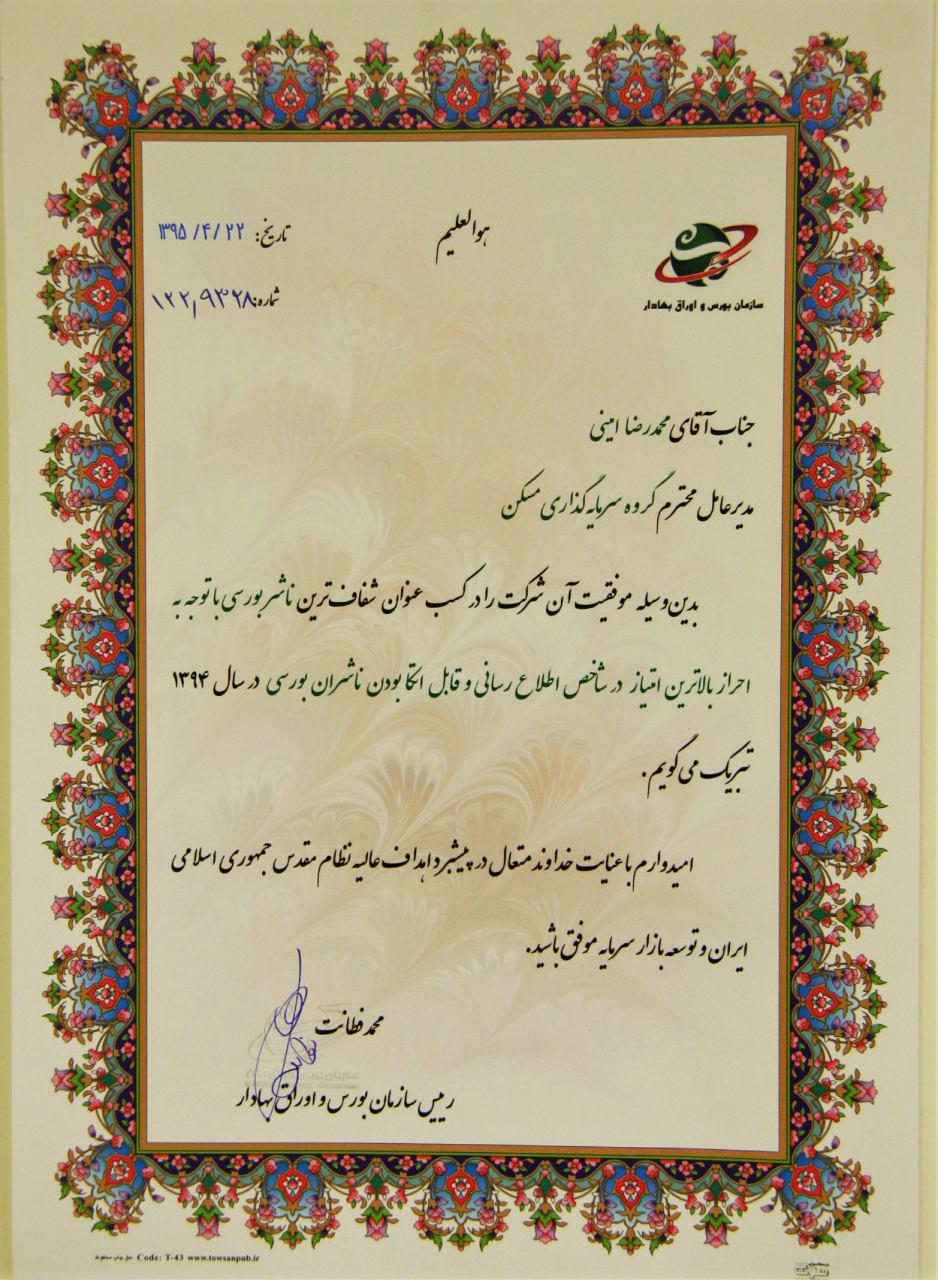 هوالعلیم
تاریخ: ۱۳۹۵/۴/۲۲
شماره: ۱۲۲/۹۳۲۸
سازمان بورس و اوراق بهادار
جناب آقای محمدرضا امینی
مدیرعامل محترم گروه سرمایه گذاری مسکن
بدین وسیله موفقیت آن شرکت را در کسب عنوان شفاف ترین ناشر بورسی با توجه به
احراز بالاترین امتیاز در شاخص اطلاع رسانی و قابل اتکا بودن ناشران بورسی در سال ۱۳۹۴
تبریک می گویم.
امیدوارم با عنایت خداوند متعال در پیشبرد اهداف عالیه نظام مقدس جمهوری اسلامی
ایران و توسعه بازار سرمایه موفق باشید.
محمد فطانت
رییس سازمان بورس و اوراق بهادار
حق چاپ محفوظ Code: T-43 www.towsanpub.ir